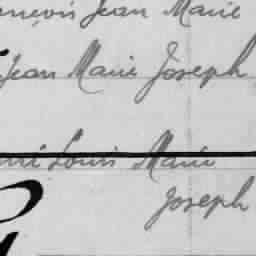 Jean Marie
Jean Marie Joseph
Louis Marie
Joseph